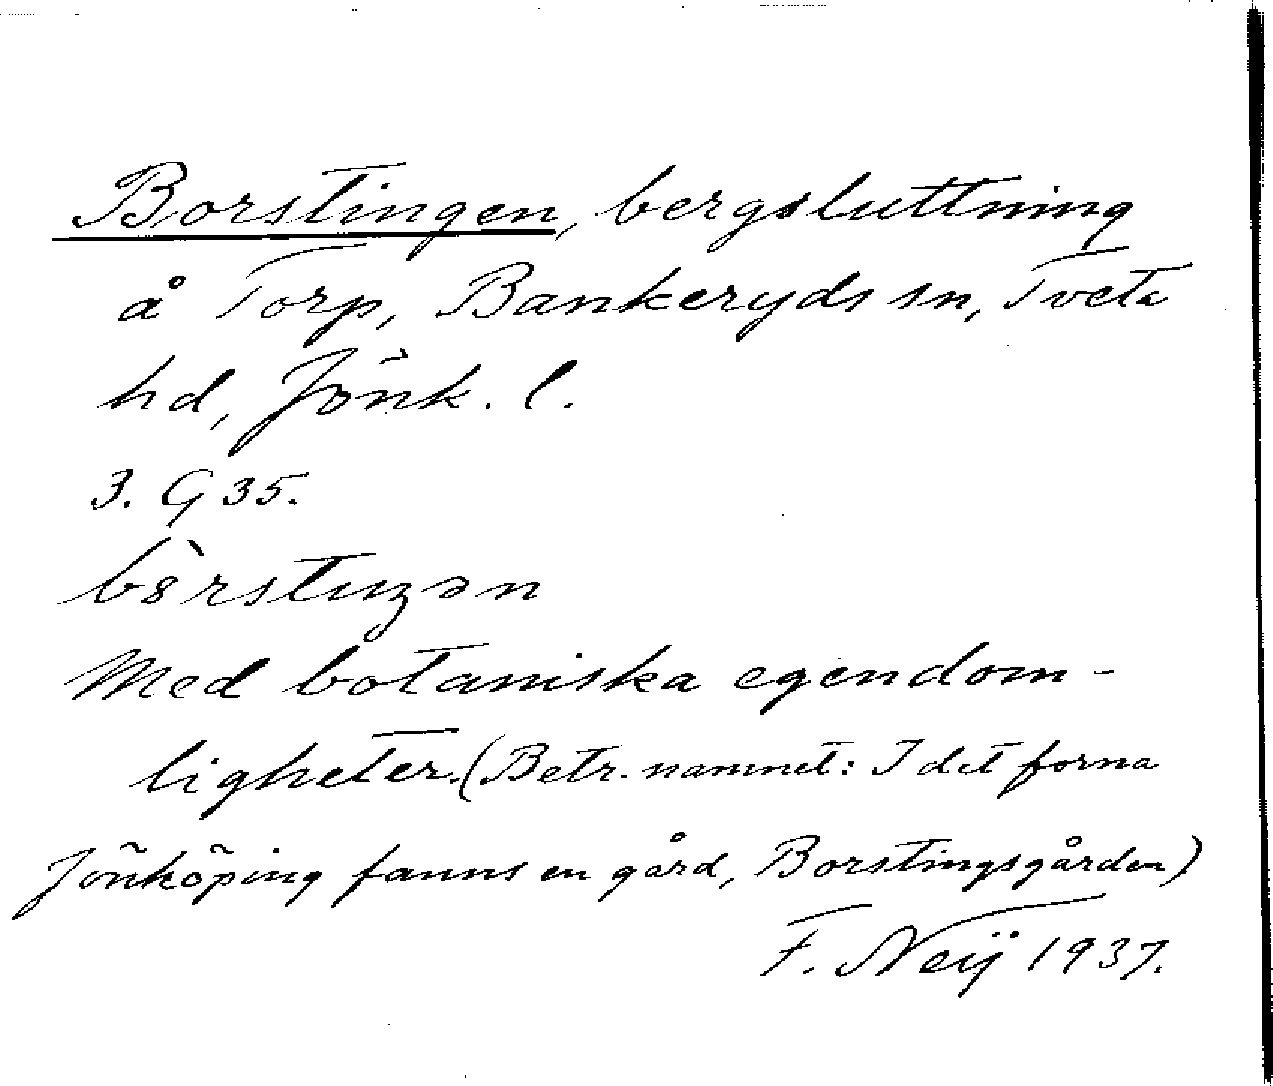 Borstingen, bergsluttning
å Torp, Bankeryds sn, Tveta
hd, Jönk. l.
3. G 35.
Med botaniska egendom-
ligheter. (Betr. namnet: I det forna
Jönköping fanns en gård, Borstingsgården)
F. Neij 1937.